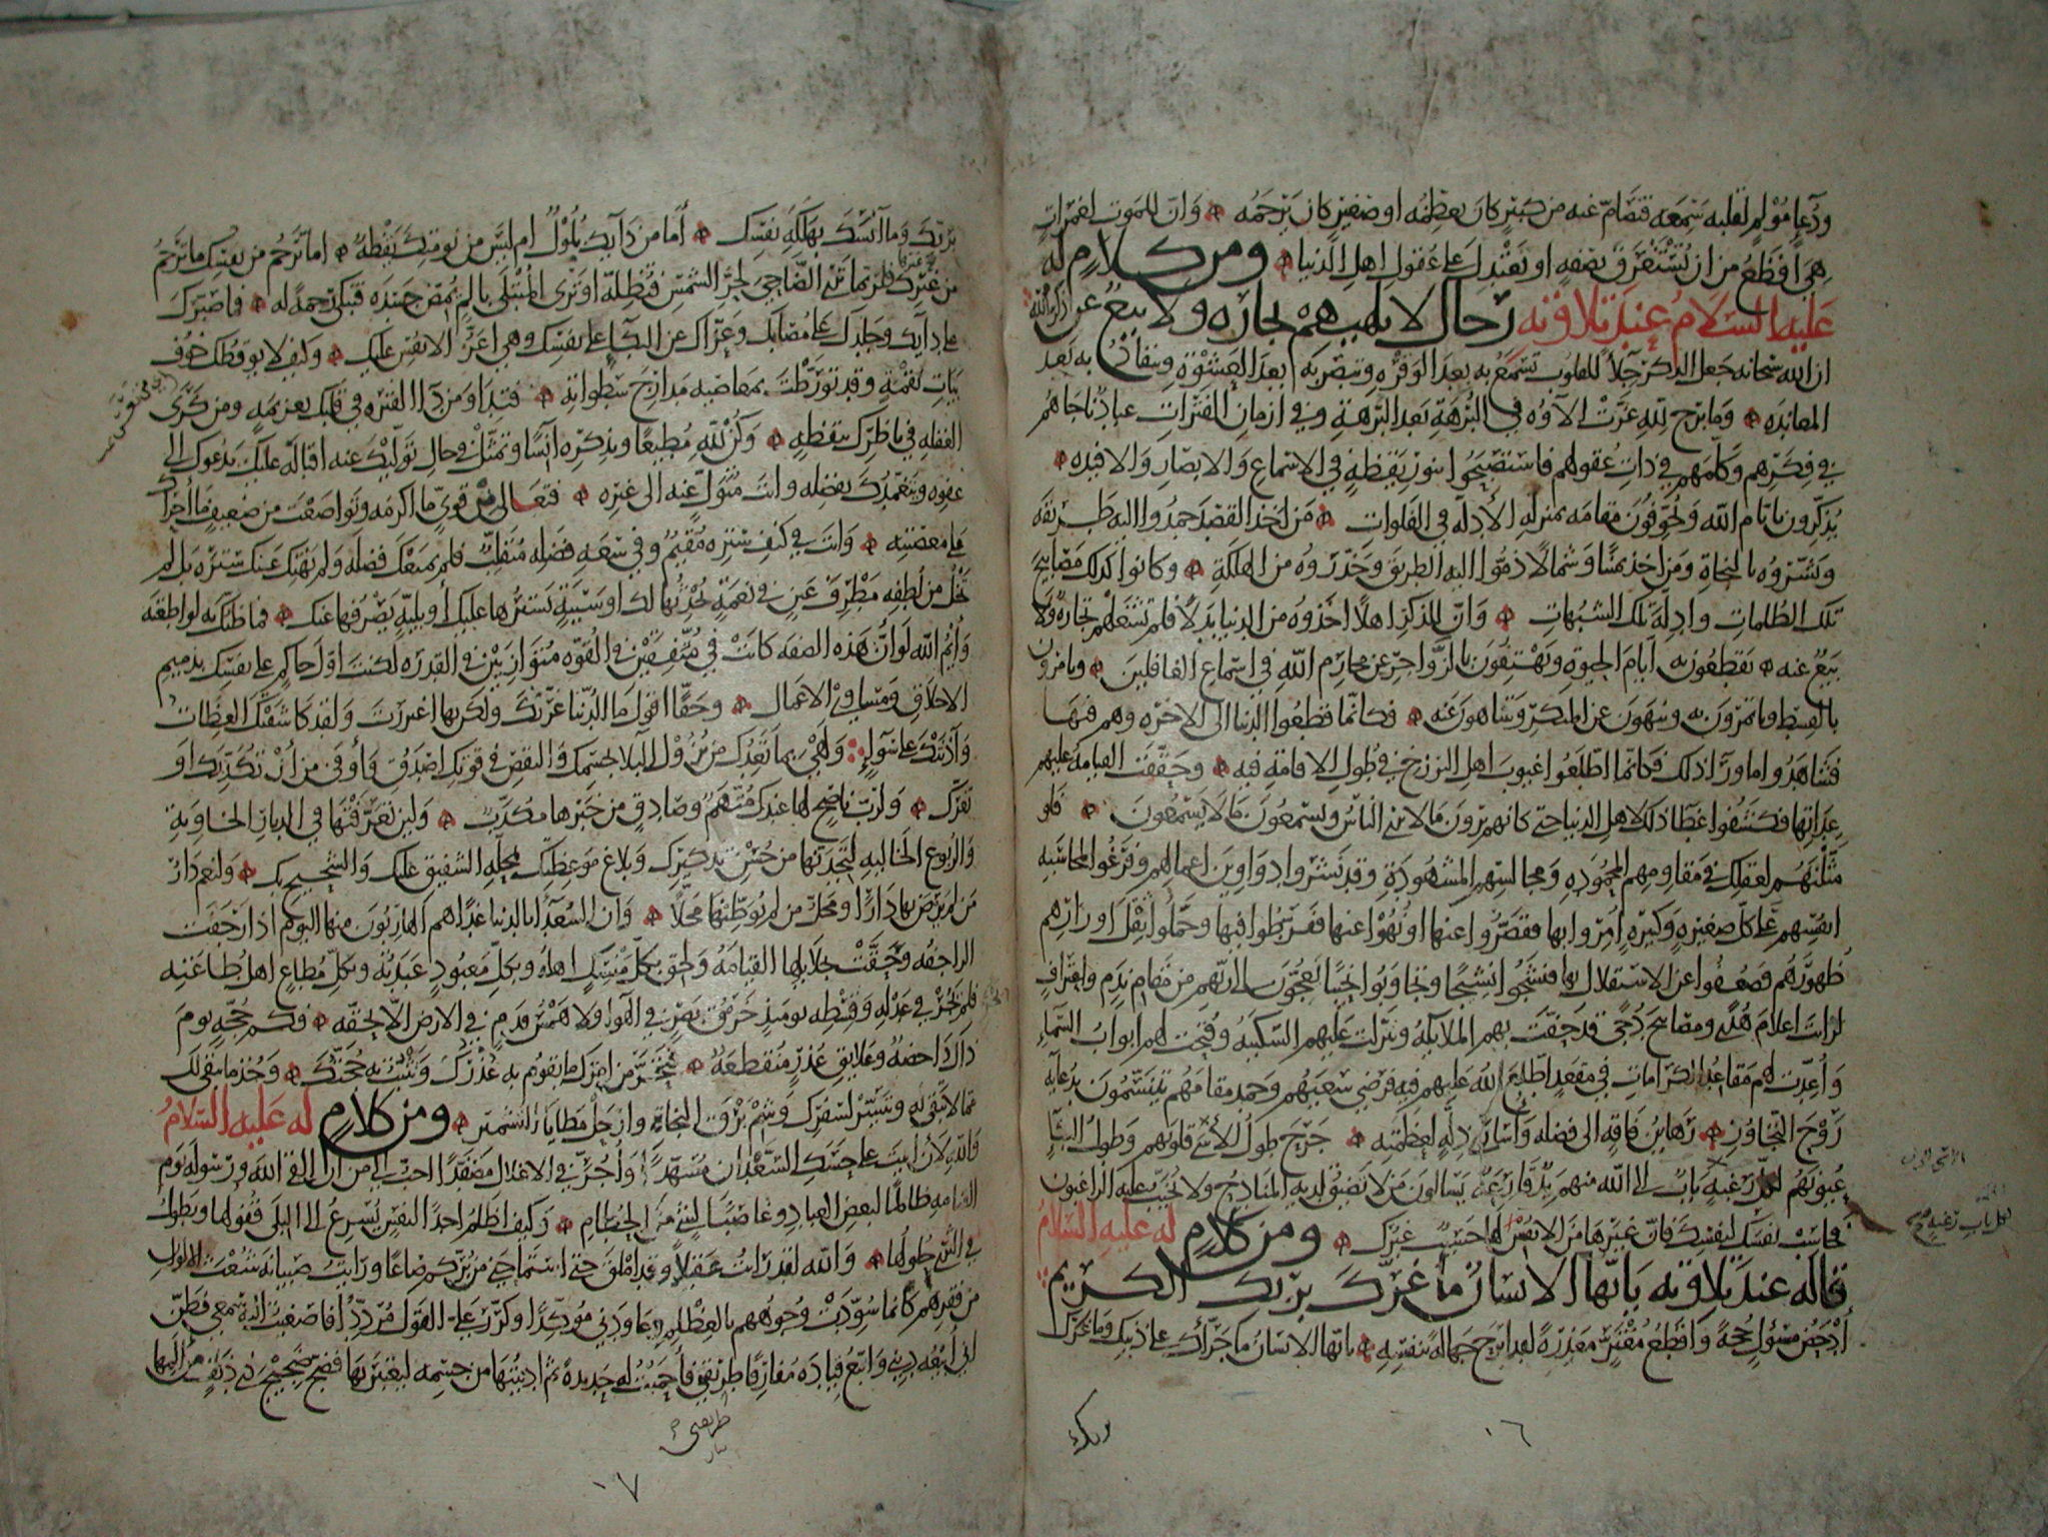 ودعا مولم لقلبه سمعه فتصام عنه من كبير كان يعظمه او صغير كان يرحمه وان للموت لغمرات
هي افظع من ان تستغرق بصفه او تعتدل على عقول اهل الدنيا ومن كلام له
عليه السلام عند تلاوته رجال لا تلهيهم تجارة ولا بيع عن ذكر الله
ان الله سبحانه جعل الذكر جلاء للقلوب تسمع به بعد الوقره وتبصر به بعد العشوة وتنقاد به بعد
المعانده وما برح لله عزت الاؤه في البرهة بعد البرهة وفي ازمان الفترات عباد ناجاهم
في فكرهم وكلمهم في ذات عقولهم فاستصبحوا بنور يقظه في الاسماع والابصار والافيده
يذكرون بايام الله ويخوفون مقامه بمنزله الادله في الفلوات من اخذ القصد حمدوا اليه طريقه
وبشروه بالنجاة ومن اخذ يمينا وشمالا ذموا اليه الطريق وحذروه من الهلكة وكانوا كذلك مصابيح
تلك الظلمات وادلة تلك الشبهات وان للذكر اهلا اخذوه من الدنيا بدلا فلم تشغلهم تجارة ولا
بيع عنه يقطعون به ايام الحيوة ويهتفون بالزواجر عن محارم الله في اسماع الغافلين ويامرون
بالقسط وياتمرون به وينهون عن المنكر ويتناهون عنه فكانما قطعوا الدنيا الى الاخره وهم فيها
فشاهدوا ما ورا ذلك فكانما اطلعوا غيوب اهل البرزخ في طول الاقامة فيه وحققت القيامة عليهم
عداتها فكشفوا غطا ذلك لاهل الدنيا حتى كانهم يرون ما لا يرى الناس ويسمعون ما لا يسمعون فلو
مثلتهم لعقلك في مقاومهم المحموده ومجالسهم المشهودة وقد نشروا دواوين اعمالهم وفرغوا لمحاسبه
انفسهم على كل صغيره وكبيره امروا بها فقصروا عنها او نهوا عنها ففرطوا فيها وحملوا ثقل اوزارهم
ظهورهم فضعفوا عن الاستقلال بها فنشجوا نشيجا وتجاوبوا نحيبا يعجون الى ربهم من مقام ندم واعتراف
لرايت اعلام هدى ومصابيح دجى قد حفت بهم الملايكه وتنزلت عليهم السكينه وفتحت لهم ابواب السماء
واعدت لهم مقاعد الكرامات في مقعد اطلع الله عليهم فيه فرضي سعيهم وحمد مقامهم يتنسمون بدعايه
روح التجاوز رهاين فاقه الى فضله واسارى ذله لعظمته جرح طول الاسى قلوبهم وطول البكا
عيونهم لكل باب رغبه الى الله منهم يد قارعه يسالون من لا تضيق لديه المنادح ولا يخيب عليه الراغبون
فحاسب نفسك لنفسك فان غيرها من الانفس لها حسيب غيرك ومن كلام له عليه السلام
قاله عند تلاوته يا ايها الانسان ما غرك بربك الكريم
ادحض مسؤل حجة واقطع مغتر معذرة لقد ابرح جهالة بنفسه يا ايها الانسان ما جراك على ذنبك وما غرك
١٦
بربك وما آنسك بهلكة نفسك أما من دايك بلول ام ليس من نومتك يقظه اما ترحم من نفسك ما ترحم
من غيرك فلربما ترى الضاحي لحر الشمس فتظله او ترى المبتلى بالم يمض جسده فتبكي رحمة له فما صبرك
على دايك وجلدك على مصابك وعزاك عن البكا على نفسك وهي اعز الانفس عليك وكيف لا يوقظك خوف
بيات نقمة وقد تورطت بمعاصيه مدارج سطواته فتداو من دا الفتره في قلبك بعزيمه ومن كرى
الغفله في ناظرك بيقظه وكن لله مطيعا وبذكره آنسا وتمثل في حال توليك عنه اقباله عليك يدعوك الى
عفوه ويتغمدك بفضله وانت متول عنه الى غيره فتعالى من قوي ما اكرمه وتواضعت من ضعيف ما اجراك
على معصيته وانت في كنف ستره مقيم وفي سعه فضله متقلب فلم يمنعك فضله ولم يهتك عنك ستره بل لم
تخل من لطفه مطرف عين في نعمة يحدثها لك او سيئة يسترها عليك او بلية يصرفها عنك فما ظنك به لو اطعته
وايم الله لو ان هذه الصفه كانت في متفقين في القوه متوازيين في القدره لكنت اول حاكم على نفسك بذميم
الاخلاق ومساوئ الاعمال وحقا اقول ما الدنيا غرتك ولكن بها اغتررت ولقد كاشفتك العظات
وآذنتك على سواء ولهي بما تعدك من نزول البلا بجسمك والنقص في قوتك اصدق واوفى من ان تكذبك او
تغرك ولرب ناصح لها عندك متهم وصادق من خبرها مكذب ولين تعرفتها في الديار الخاوية
والربوع الخاليه لتجدنها من حسن تذكيرك وبلاغ موعظتك بمحلة الشفيق عليك والشحيح بك ولنعم دار
من لم يرض بها دارا ومحل من لم يوطنها محلا وان السعدا بالدنيا غدا هم الهاربون منها اليوم اذا رجفت
الراجفه وحقت بجلايلها القيامه ولحق بكل منسك اهله وبكل معبود عبدته وبكل مطاع اهل طاعته
فلم يجز في عدله وقسطه يوميذ خرق بصر في الهوا ولا همس قدم في الارض الا بحقه فكم حجه يوم
ذاك داحضه وعلايق عذر منقطعه فتحر من امرك ما يقوم به عذرك وتثبت به حجتك وخذ ما يبقى لك
مما لا تبقى له وتيسر لسفرك وشم برق النجاة وارحل مطايا التشمير ومن كلام له عليه السلام
والله لان ابيت على حسك السعدان مسهدا واجر في الاغلال مصفدا احب الي من ان القى الله ورسوله يوم
القيامه ظالما لبعض العباد وغاصبا لشيء من الحطام وكيف اظلم احدا لنفس يسرع الى البلى قفولها ويطول
في الثرى حلولها والله لقد رايت عقيلا وقد املق حتى استماحني من بركم صاعا ورايت صبيانه شعث الالوان
من فقرهم كانما سودت وجوههم بالعظلم وعاودني موكدا وكرر علي القول مرددا فاصغيت اليه سمعي فظن
اني ابيعه ديني واتبع قياده مفارقا طريقتي فاحميت له حديدة ثم ادنيتها من جسمه ليعتبر بها فضج ضجيج ذي دنف من المها
طريقتي
١٧